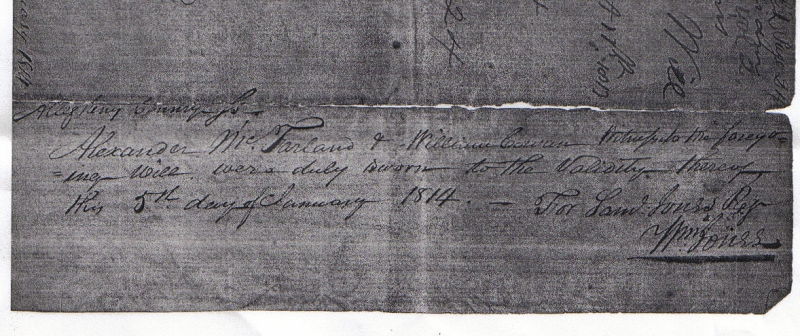 Allegheny County Ss.
Alexander McFarland & William Cowan Witness to the forego=
=ing Will were duly sworn to the Validity thereof
this 5th day of January 1814. — For Saml. Jones Reg
Wm Jones
Will